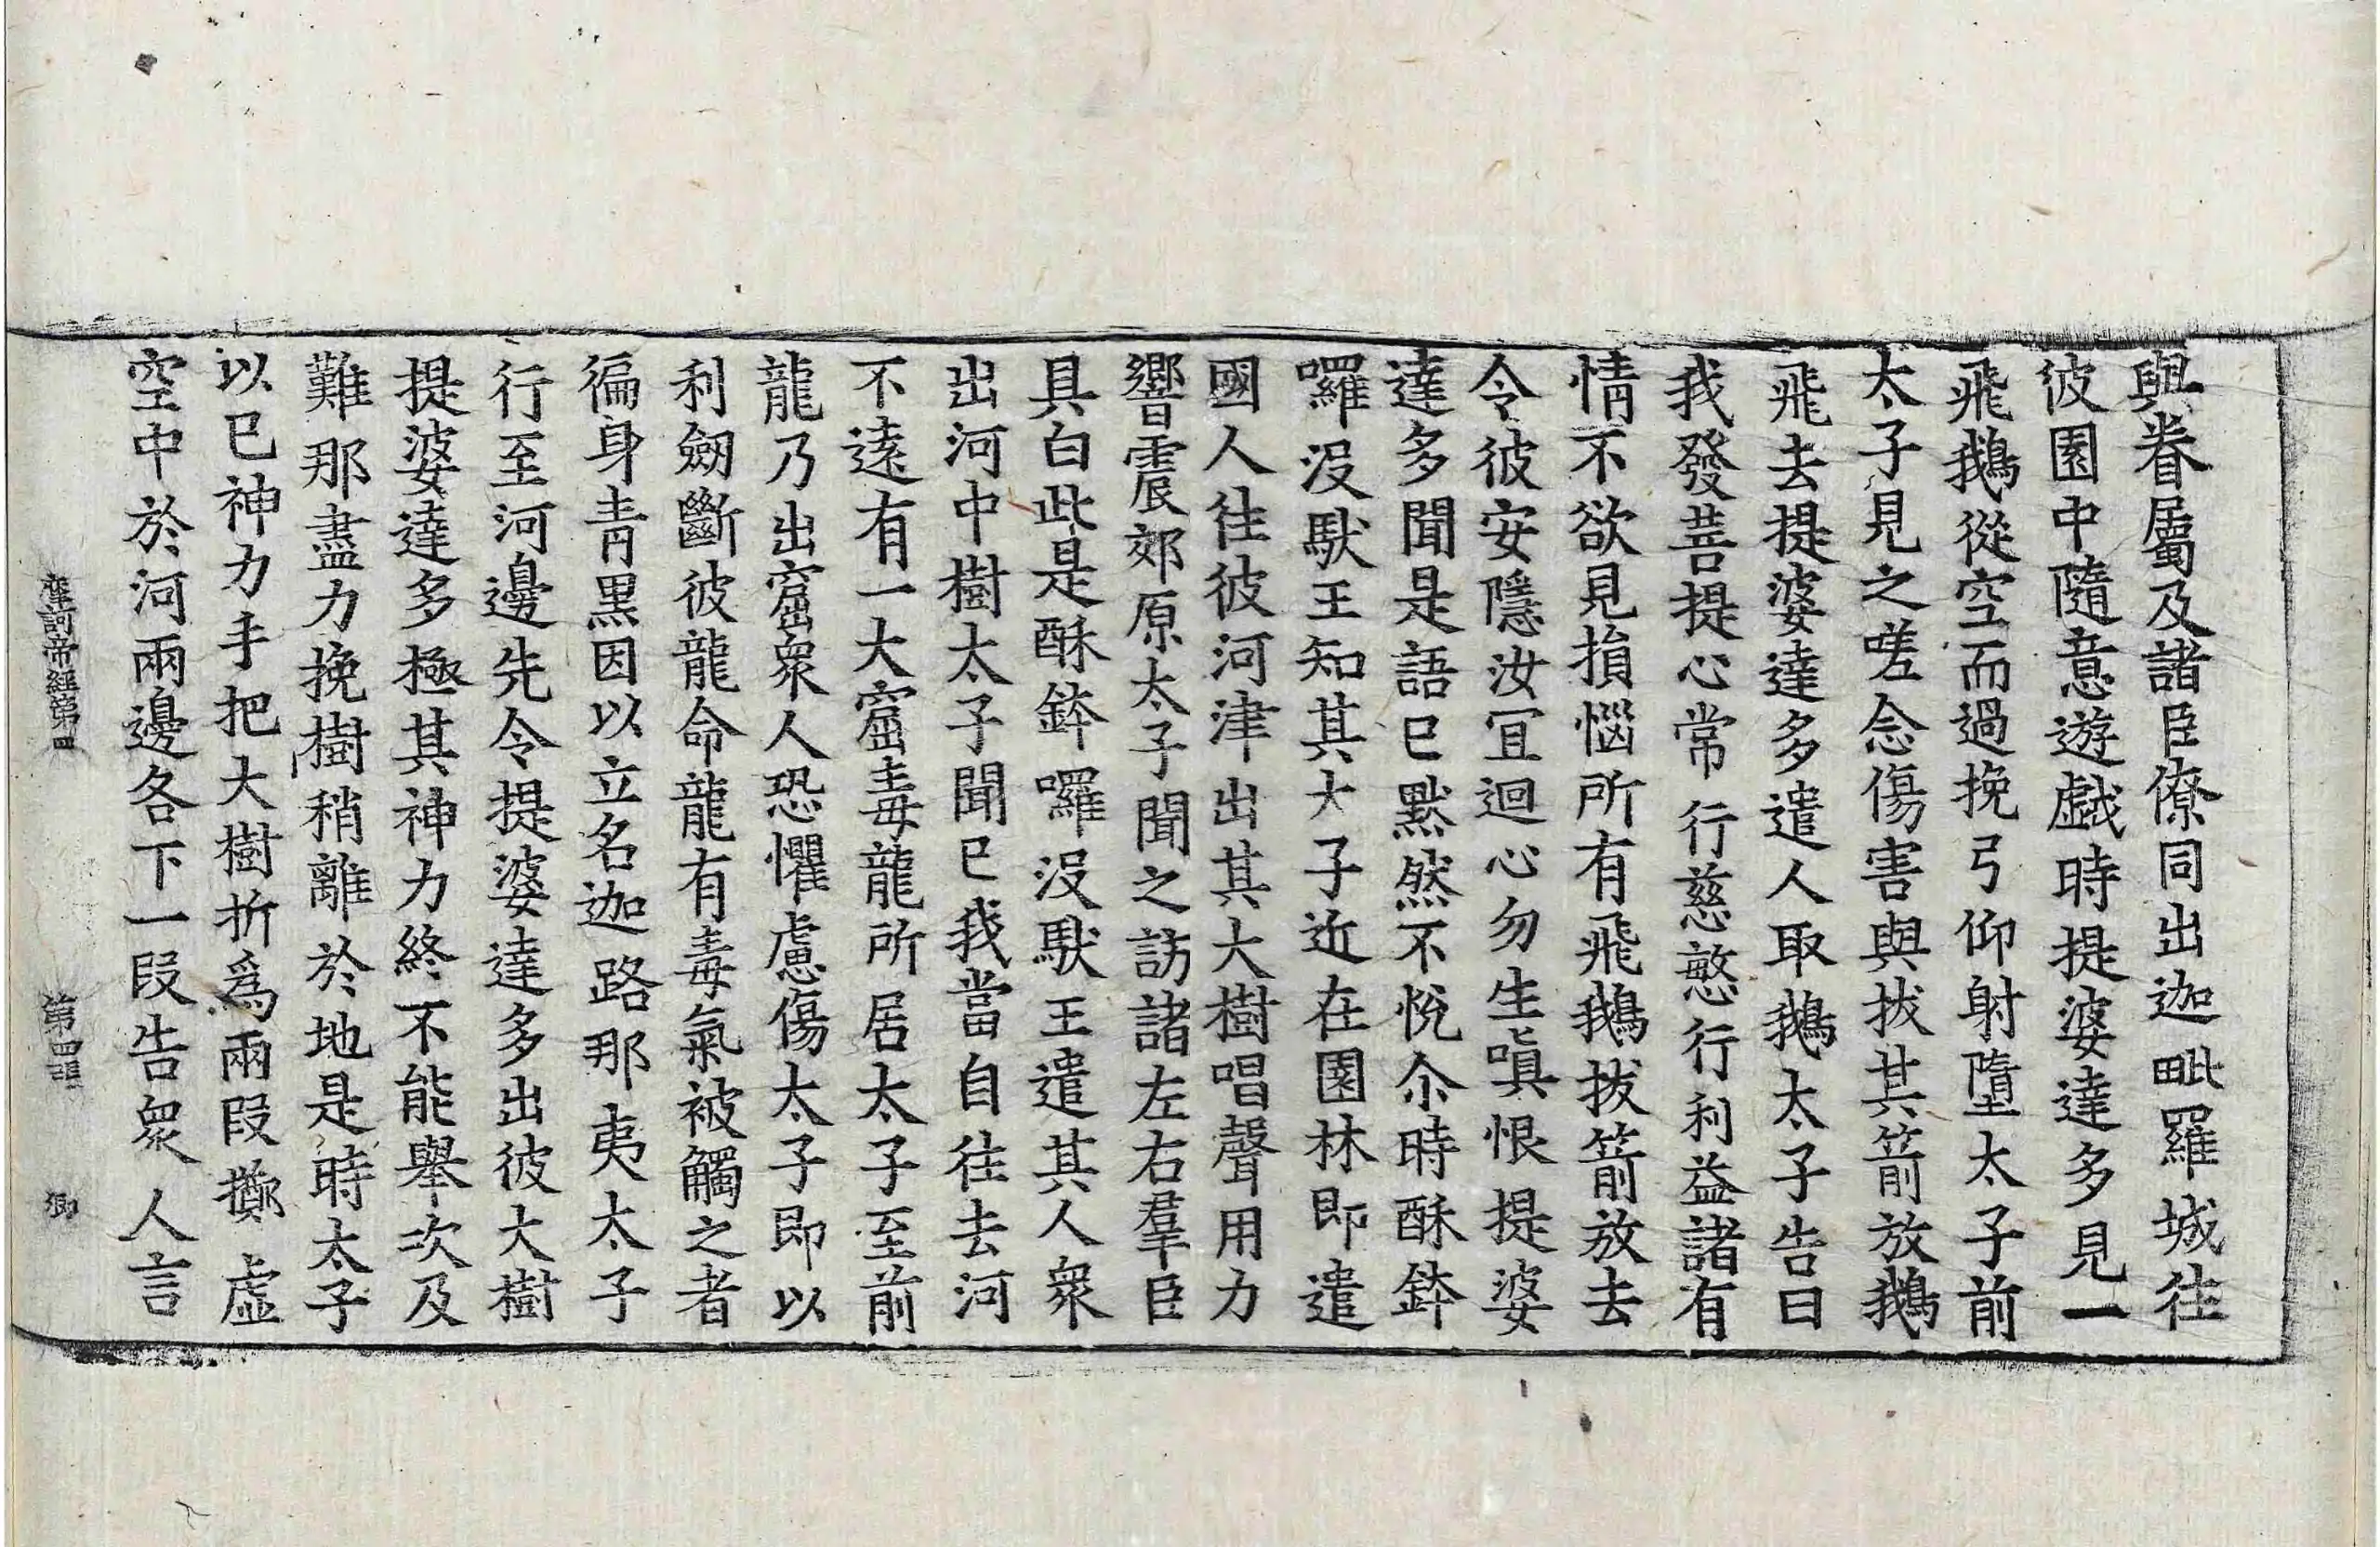 與眷屬及諸臣僚同出迦毗羅城往
彼園中隨意遊戲時提婆達多見一
飛鵝從空而過挽弓仰射墮太子前
太子見之嗟念傷害與拔其箭放鵝
飛去提婆達多遣人取鵝太子告曰
我發菩提心常行慈愍行利益諸有
情不欲見損惱所有飛鵝拔箭放去
令彼安隱汝冝迴心勿生嗔恨提婆
達多聞是語已默然不悅尒時酥鉢
囉沒䭾王知其大子近在園林即遣
國人往彼河津出其大樹唱聲用力
響震郊原太子聞之訪諸左右羣臣
具白此是酥鉢囉沒䭾王遣其人衆
出河中樹太子聞已我當自往去河
不遠有一大窟毒龍所居太子至前
龍乃出窟衆人恐懼慮傷太子即以
利劒斷彼龍命龍有毒氣被觸之者
徧身青黑因以立名迦路那夷太子
行至河邊先令提婆達多出彼大樹
提婆達多極其神力終不能舉次及
難那盡力挽樹稍離於地是時太子
以已神力手把大樹折爲兩段擲虛
空中於河兩邊各下一段告衆人言
摩訶帝經第四
第四張
御